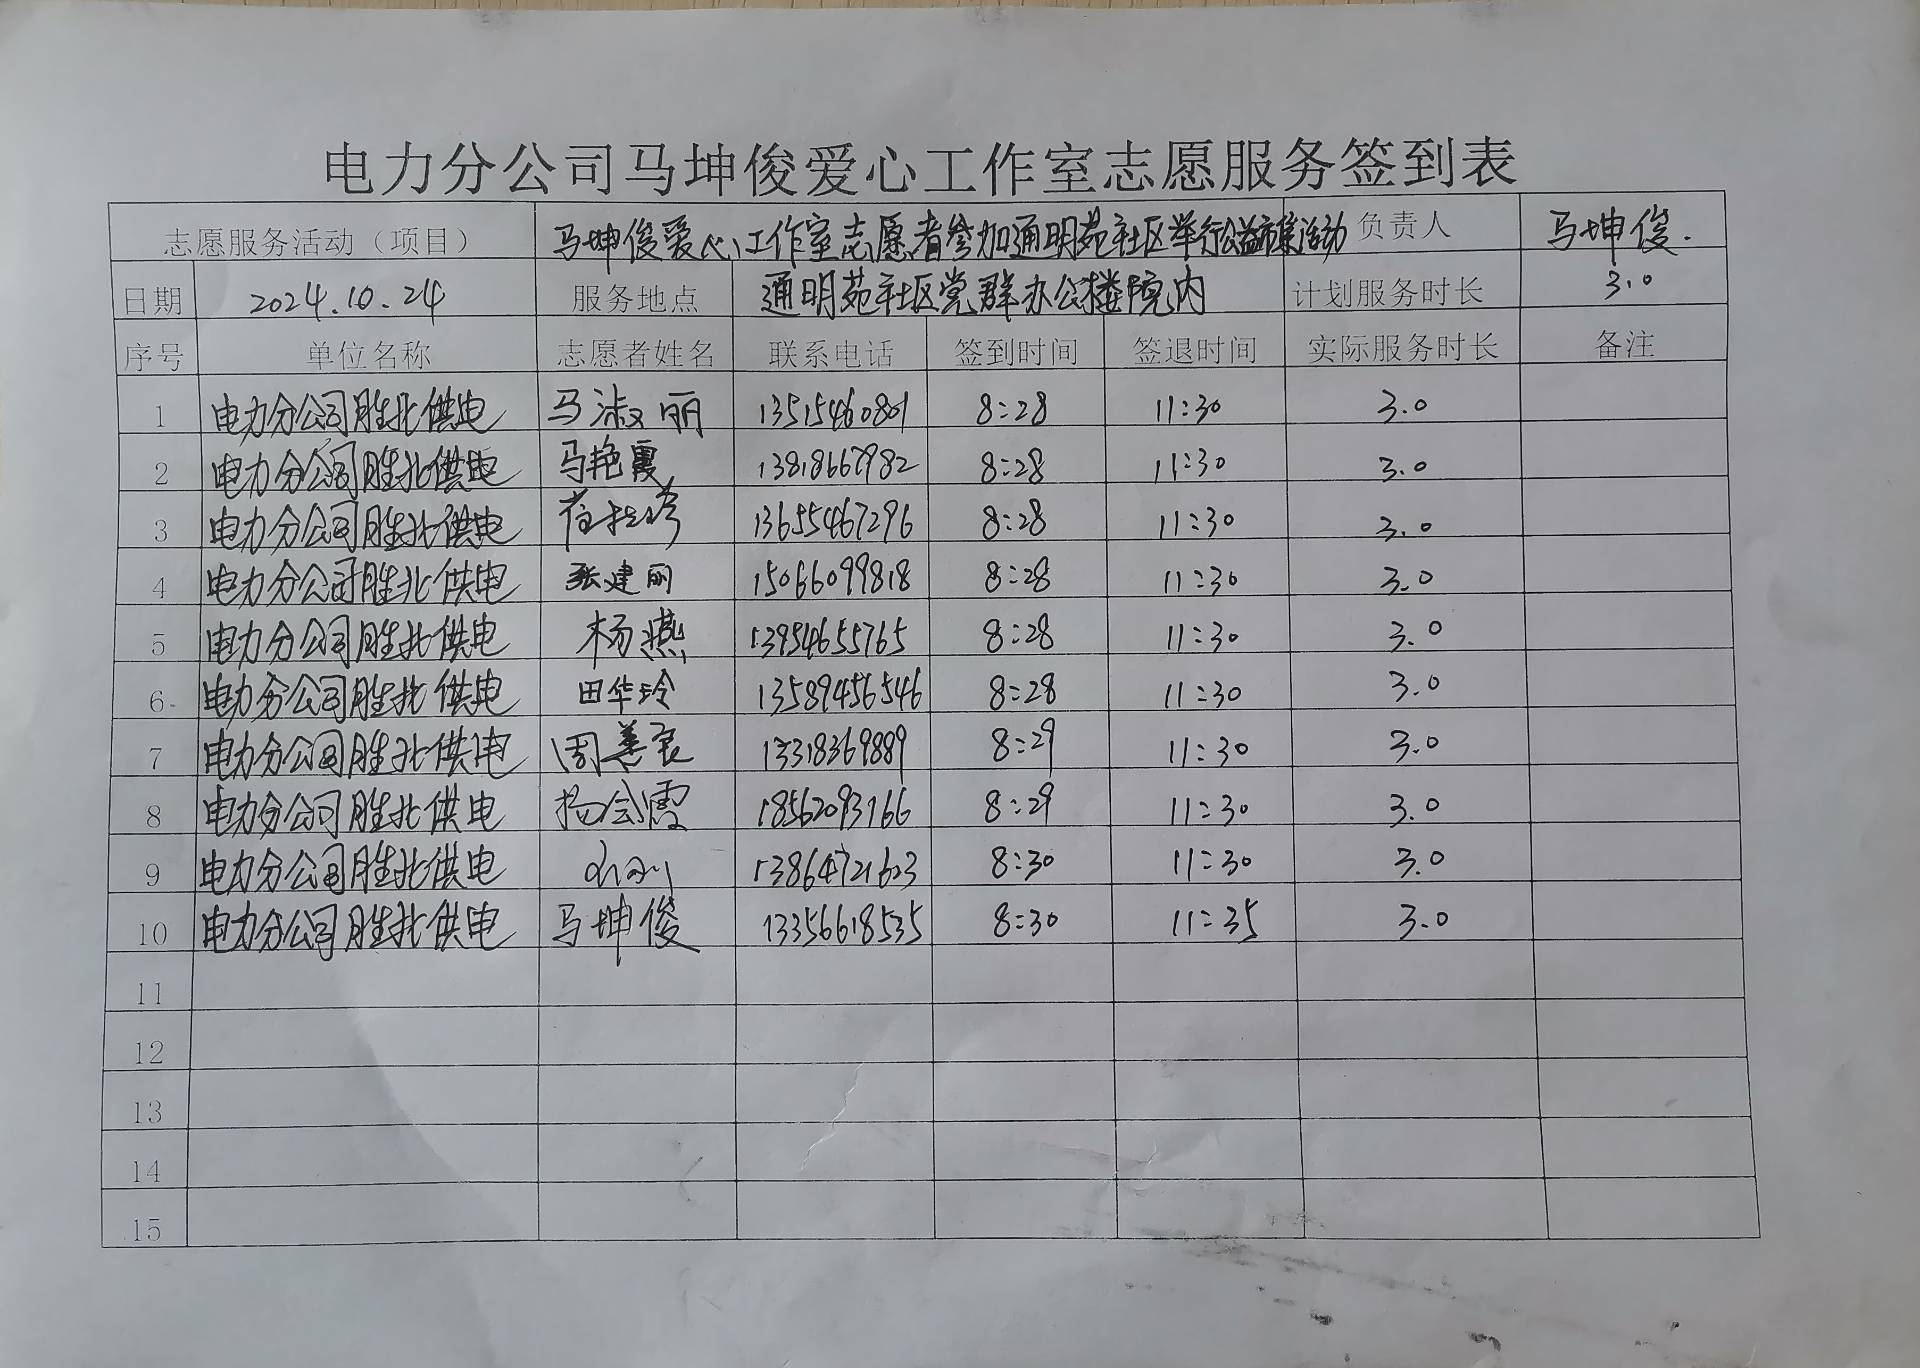 电力分公司马坤俊爱心工作室志愿服务签到表
志愿服务活动（项目） 马坤俊爱心工作室志愿者参加通明苑社区举行公益市集活动 负责人 马坤俊.
日期 2024.10.24 服务地点 通明苑社区党群办公楼院内 计划服务时长 3.0
序号 单位名称 志愿者姓名 联系电话 签到时间 签退时间 实际服务时长 备注
1 电力分公司胜北供电 马淑丽 13515460801 8:28 11:30 3.0
2 电力分公司胜北供电 马艳霞 13818667982 8:28 11:30 3.0
3 电力分公司胜北供电 13655467296 8:28 11:30 3.0
4 电力分公司胜北供电 张建丽 15066099818 8:28 11:30 3.0
5 电力分公司胜北供电 杨燕 13954655765 8:28 11:30 3.0
6 电力分公司胜北供电 田华玲 13589456546 8:28 11:30 3.0
7 电力分公司胜北供电 周善良 13318369889 8:29 11:30 3.0
8 电力分公司胜北供电 杨会霞 18562093166 8:29 11:30 3.0
9 电力分公司胜北供电 13864721623 8:30 11:30 3.0
10 电力分公司胜北供电 马坤俊 13356618535 8:30 11:35 3.0
11
12
13
14
15